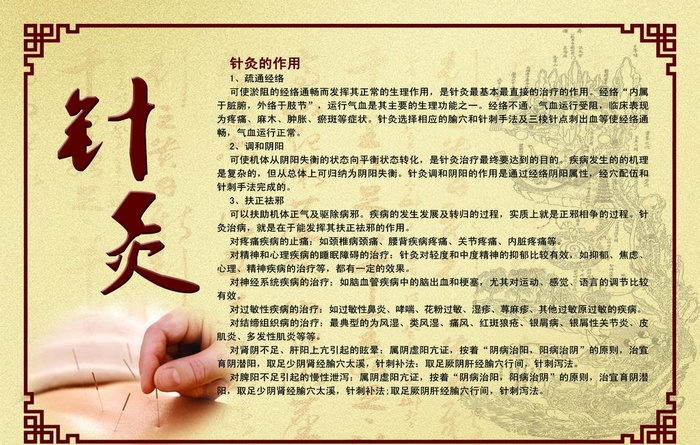 针灸
针灸的作用
1、疏通经络
可使淤阻的经络通畅而发挥其正常的生理作用，是针灸最基本最直接的治疗的作用。经络“内属
于脏腑，外络于肢节”，运行气血是其主要的生理功能之一。经络不通，气血运行受阻，临床表现
为疼痛、麻木、肿胀、瘀斑等症状。针灸选择相应的腧穴和针刺手法及三棱针点刺出血等使经络通
畅，气血运行正常。
2、调和阴阳
可使机体从阴阳失衡的状态向平衡状态转化，是针灸治疗最终要达到的目的。疾病发生的的机理
是复杂的，但从总体上可归纳为阴阳失衡。针灸调和阴阳的作用是通过经络阴阳属性，经穴配伍和
针刺手法完成的。
3、扶正祛邪
可以扶助机体正气及驱除病邪。疾病的发生发展及转归的过程，实质上就是正邪相争的过程。针
灸治病，就是在于能发挥其扶正祛邪的作用。
对疼痛疾病的止痛：如颈椎病颈痛、腰背疾病疼痛、关节疼痛、内脏疼痛等。
对精神和心理疾病的睡眠障碍的治疗：针灸对轻度和中度精神的抑郁比较有效，如抑郁、焦虑、
心理、精神疾病的治疗等，都有一定的效果。
对神经系统疾病的治疗：如脑血管疾病中的脑出血和梗塞，尤其对运动、感觉、语言的调节比较
有效。
对过敏性疾病的治疗：如过敏性鼻炎、哮喘、花粉过敏、湿疹、荨麻疹、其他过敏原过敏的疾病。
对结缔组织病的治疗：最典型的为风湿、类风湿、痛风、红斑狼疮、银屑病、银屑性关节炎、皮
肌炎、多发性肌炎等等。
对肾阴不足、肝阳上亢引起的眩晕：属阴虚阳亢证，按着“阴病治阳，阳病治阴”的原则，治宜
育阴潜阳，取足少阴肾经腧穴太溪，针刺补法：取足厥阴肝经腧穴行间，针刺泻法。
对脾阳不足引起的慢性泄泻：属阴虚阳亢证，按着“阴病治阳，阳病治阴”的原则，治宜育阴潜
阳，取足少阴肾经腧穴太溪，针刺补法;取足厥阴肝经腧穴行间，针刺泻法。